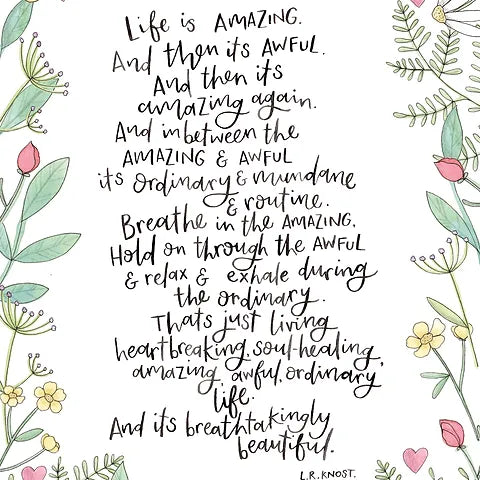 Life is AMAZING.
And then its AWFUL.
And then its
amazing again.
And inbetween the
AMAZING & AWFUL
its ordinary & mundane
& routine.
Breathe in the AMAZING,
Hold on through the AWFUL
& relax & exhale during
the ordinary.
Thats just living
heartbreaking, soul-healing,
amazing, awful, ordinary
life.
And its breathtakingly
beautiful.
L.R. KNOST.